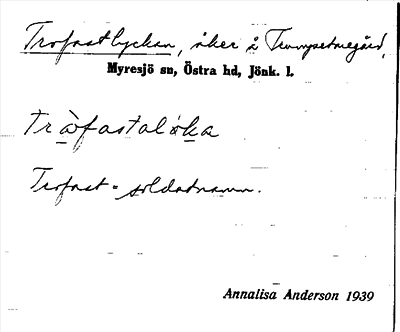 Trofastlyckan, åker å Trumpetaregård,
Myresjö sn, Östra hd, Jönk. l.
tràfastaløka
Trofast = soldatnamn.
Annalisa Anderson 1939